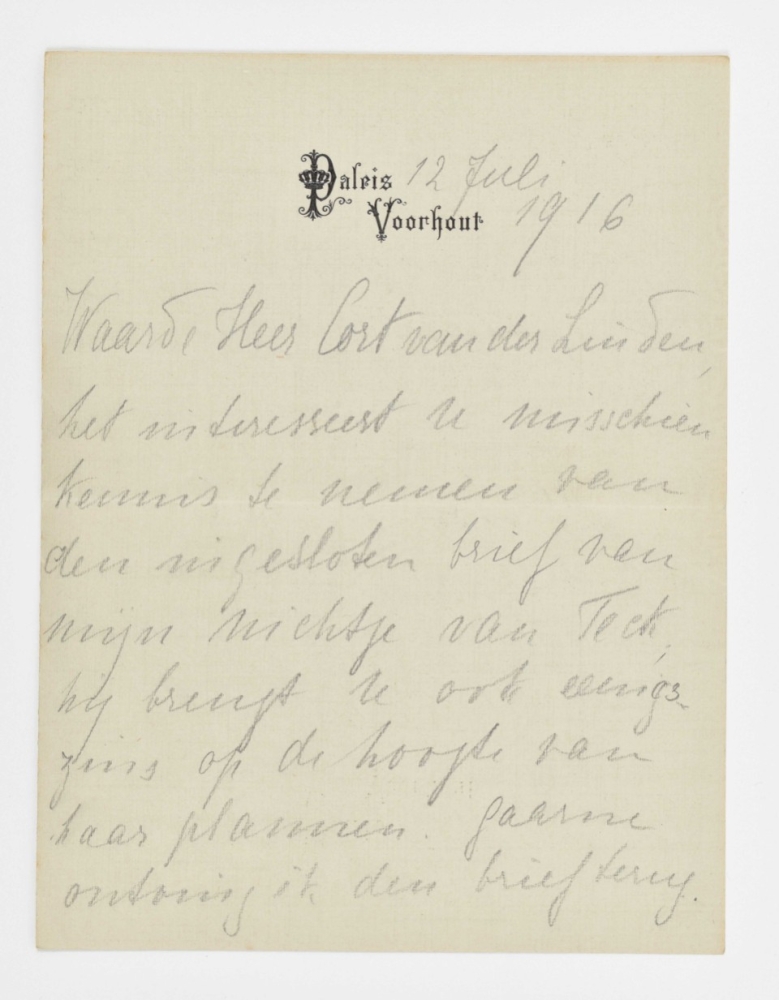 Paleis 12 Juli
Voorhout 1916
Waarde Heer Cort van der Linden,
het interesseert U misschien
kennis te nemen van
den ingesloten brief van
mijn nichtje van Teck,
hij brengt U ook eenigs-
zins op de hoogte van
haar plannen. Gaarne
ontving ik den brief terug.